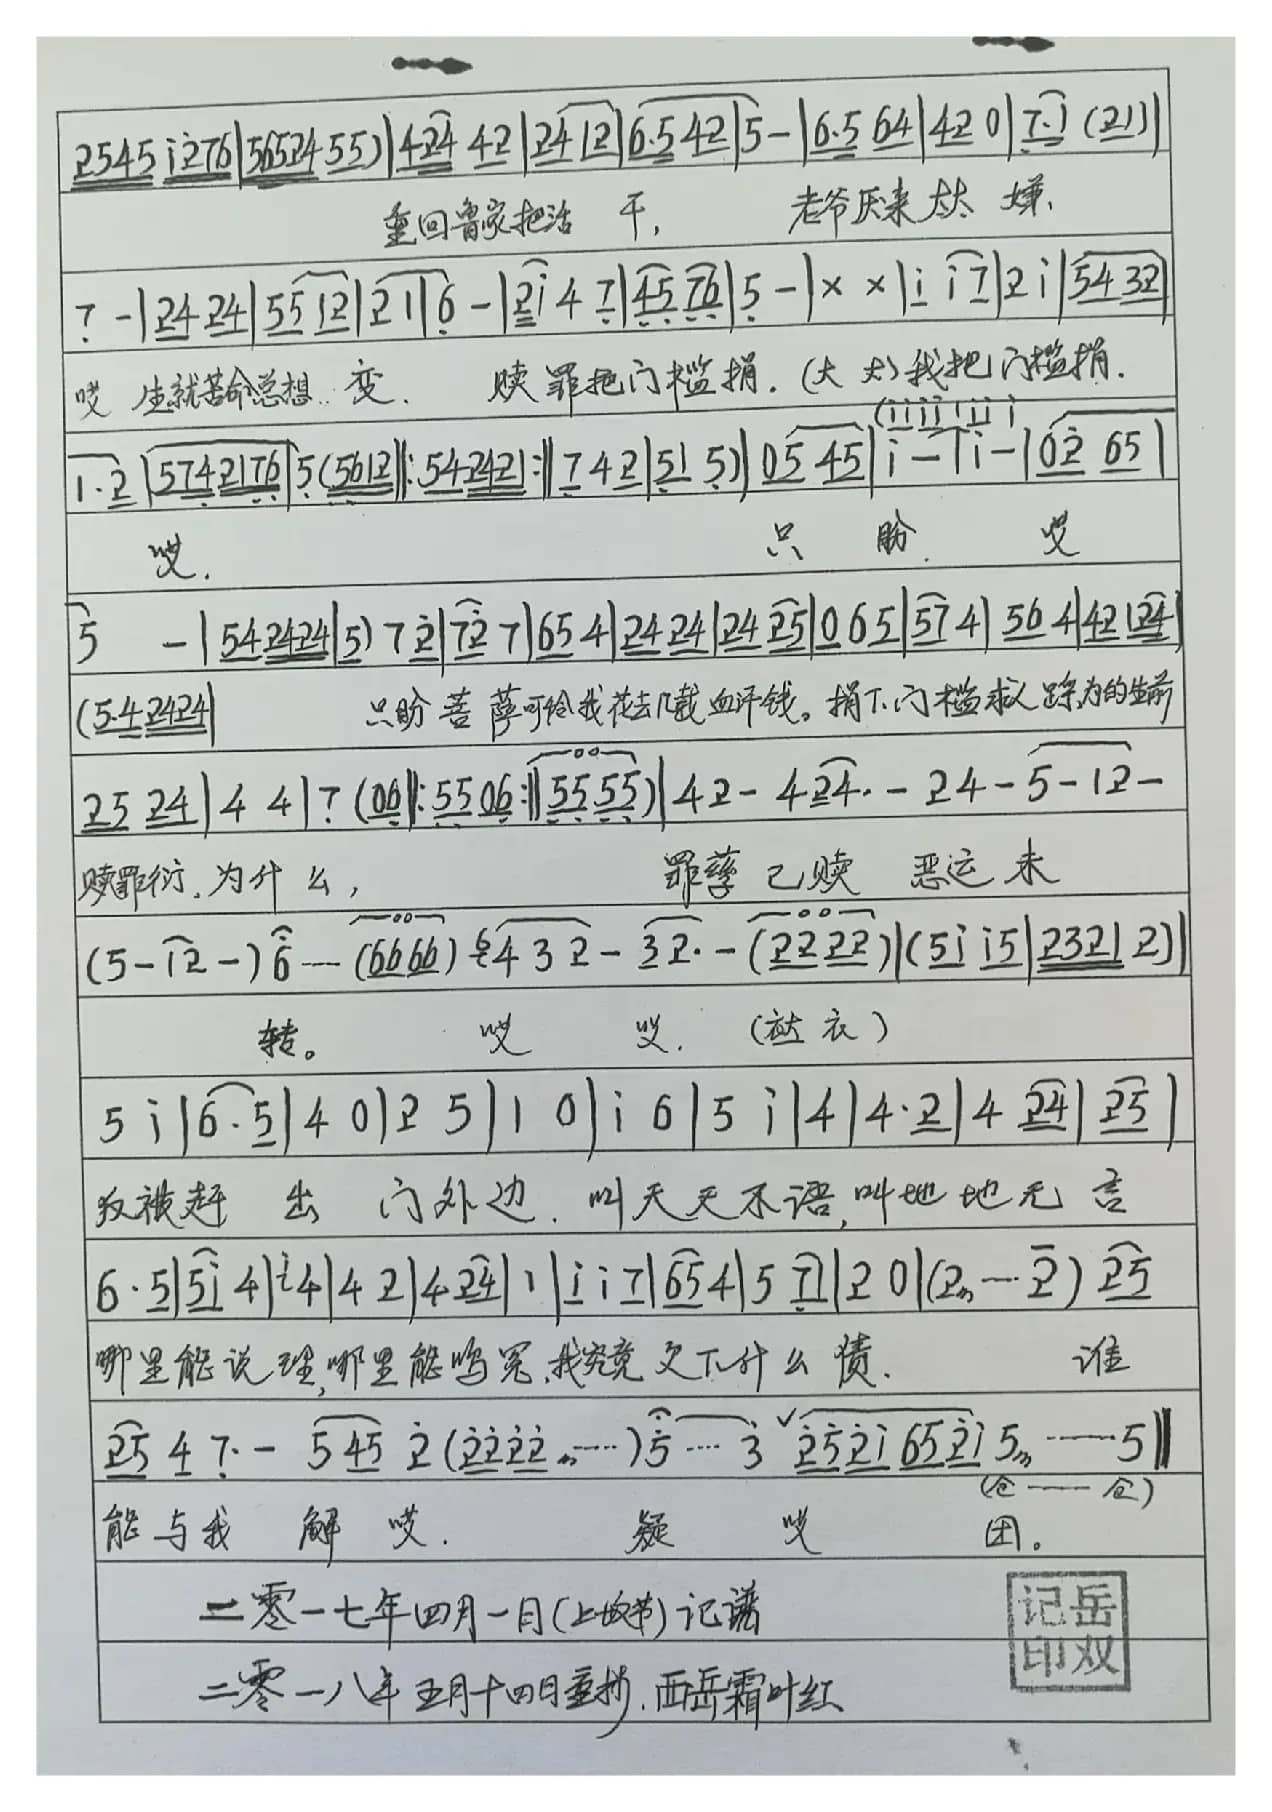 2545 i276|56524 55)|424 42|24 12|6.5 42|5 -|6.5 64|42 0|7.i (21)|
重回鲁家把活 干, 老爷厌来太太 嫌,
7 -|24 24|55 12|2 1|6 -|2i 4 7|45 76|5 -|× ×|i i7|2 i|54 32|
哎 生就苦命总想.. 变. 赎罪把门槛捐.(太 太)我把门槛捐.
(i i i i i i i i
1.2|5742176|5(5612‖:54242|:‖742|51 5)|05 45|i -|i -|02 65|
哎. 只 盼. 哎
5 -|54 2424|5) 7 2|72 7|65 4|24 24|24 25|0 65|57 4|56 4|42 124|
(54 2424| 只盼菩萨可怜我花去几载血汗钱。捐下门槛求人踩,为的生前
25 24|4 4|7 (06‖:55 06:‖55 55)|42 - 424. - 24 - 5 - 12 -
赎罪衍,为什么, 罪孽已赎 恶运未
(5 - 12 -) 6 ---- (66 66) 6 4 3 2 - 32. - (22 22)|(5i i5|2321 2)|
转。 哎 哎. (哒 衣)
5 i|6.5|4 0|2 5|1 0|i 6|5 i|4|4.2|4 24|25|
反被赶 出 门外边. 叫天天不语,叫地地无言
6.5|5i 4|i4|4 2|4 24|1|i i7|65 4|5 71|2 0|(2 ···· 2) 25
哪里能说理,哪里能鸣冤,我究竟欠下什么债. 谁
25 4 7. - 5 45 2 (2222 ·····) 5 ···· 3 ✓ 252i 652i 5 ······ 5‖
(仓 ------ 仓)
能与我 解 哎. 疑 哎 团。
二零一七年四月一日(上坟节)记谱
二零一八年五月十四日重抄.西岳霜叶红
记岳
印双